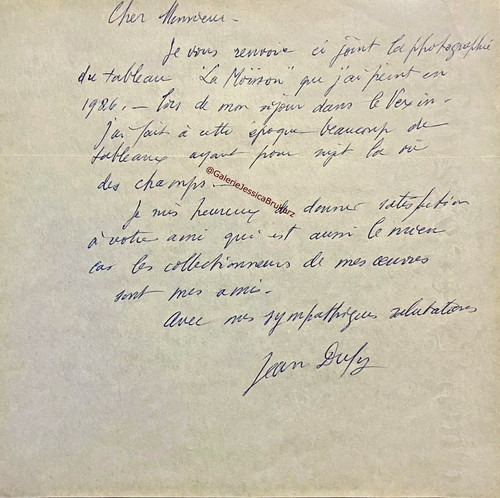 Cher Monsieur -
Je vous renvoie ci joint la photographie
du tableau "La Moisson" que j'ai peint en
1926. - lors de mon séjour dans le Vexin -
J'ai fait à cette époque beaucoup de
tableaux ayant pour sujet la vie
@GalerieJessicaBrumarz
des champs -
Je suis heureux de donner satisfaction
à votre ami qui est aussi le mien
car les collectionneurs de mes œuvres
sont mes amis -
Avec mes sympathiques salutations
Jean Dufy